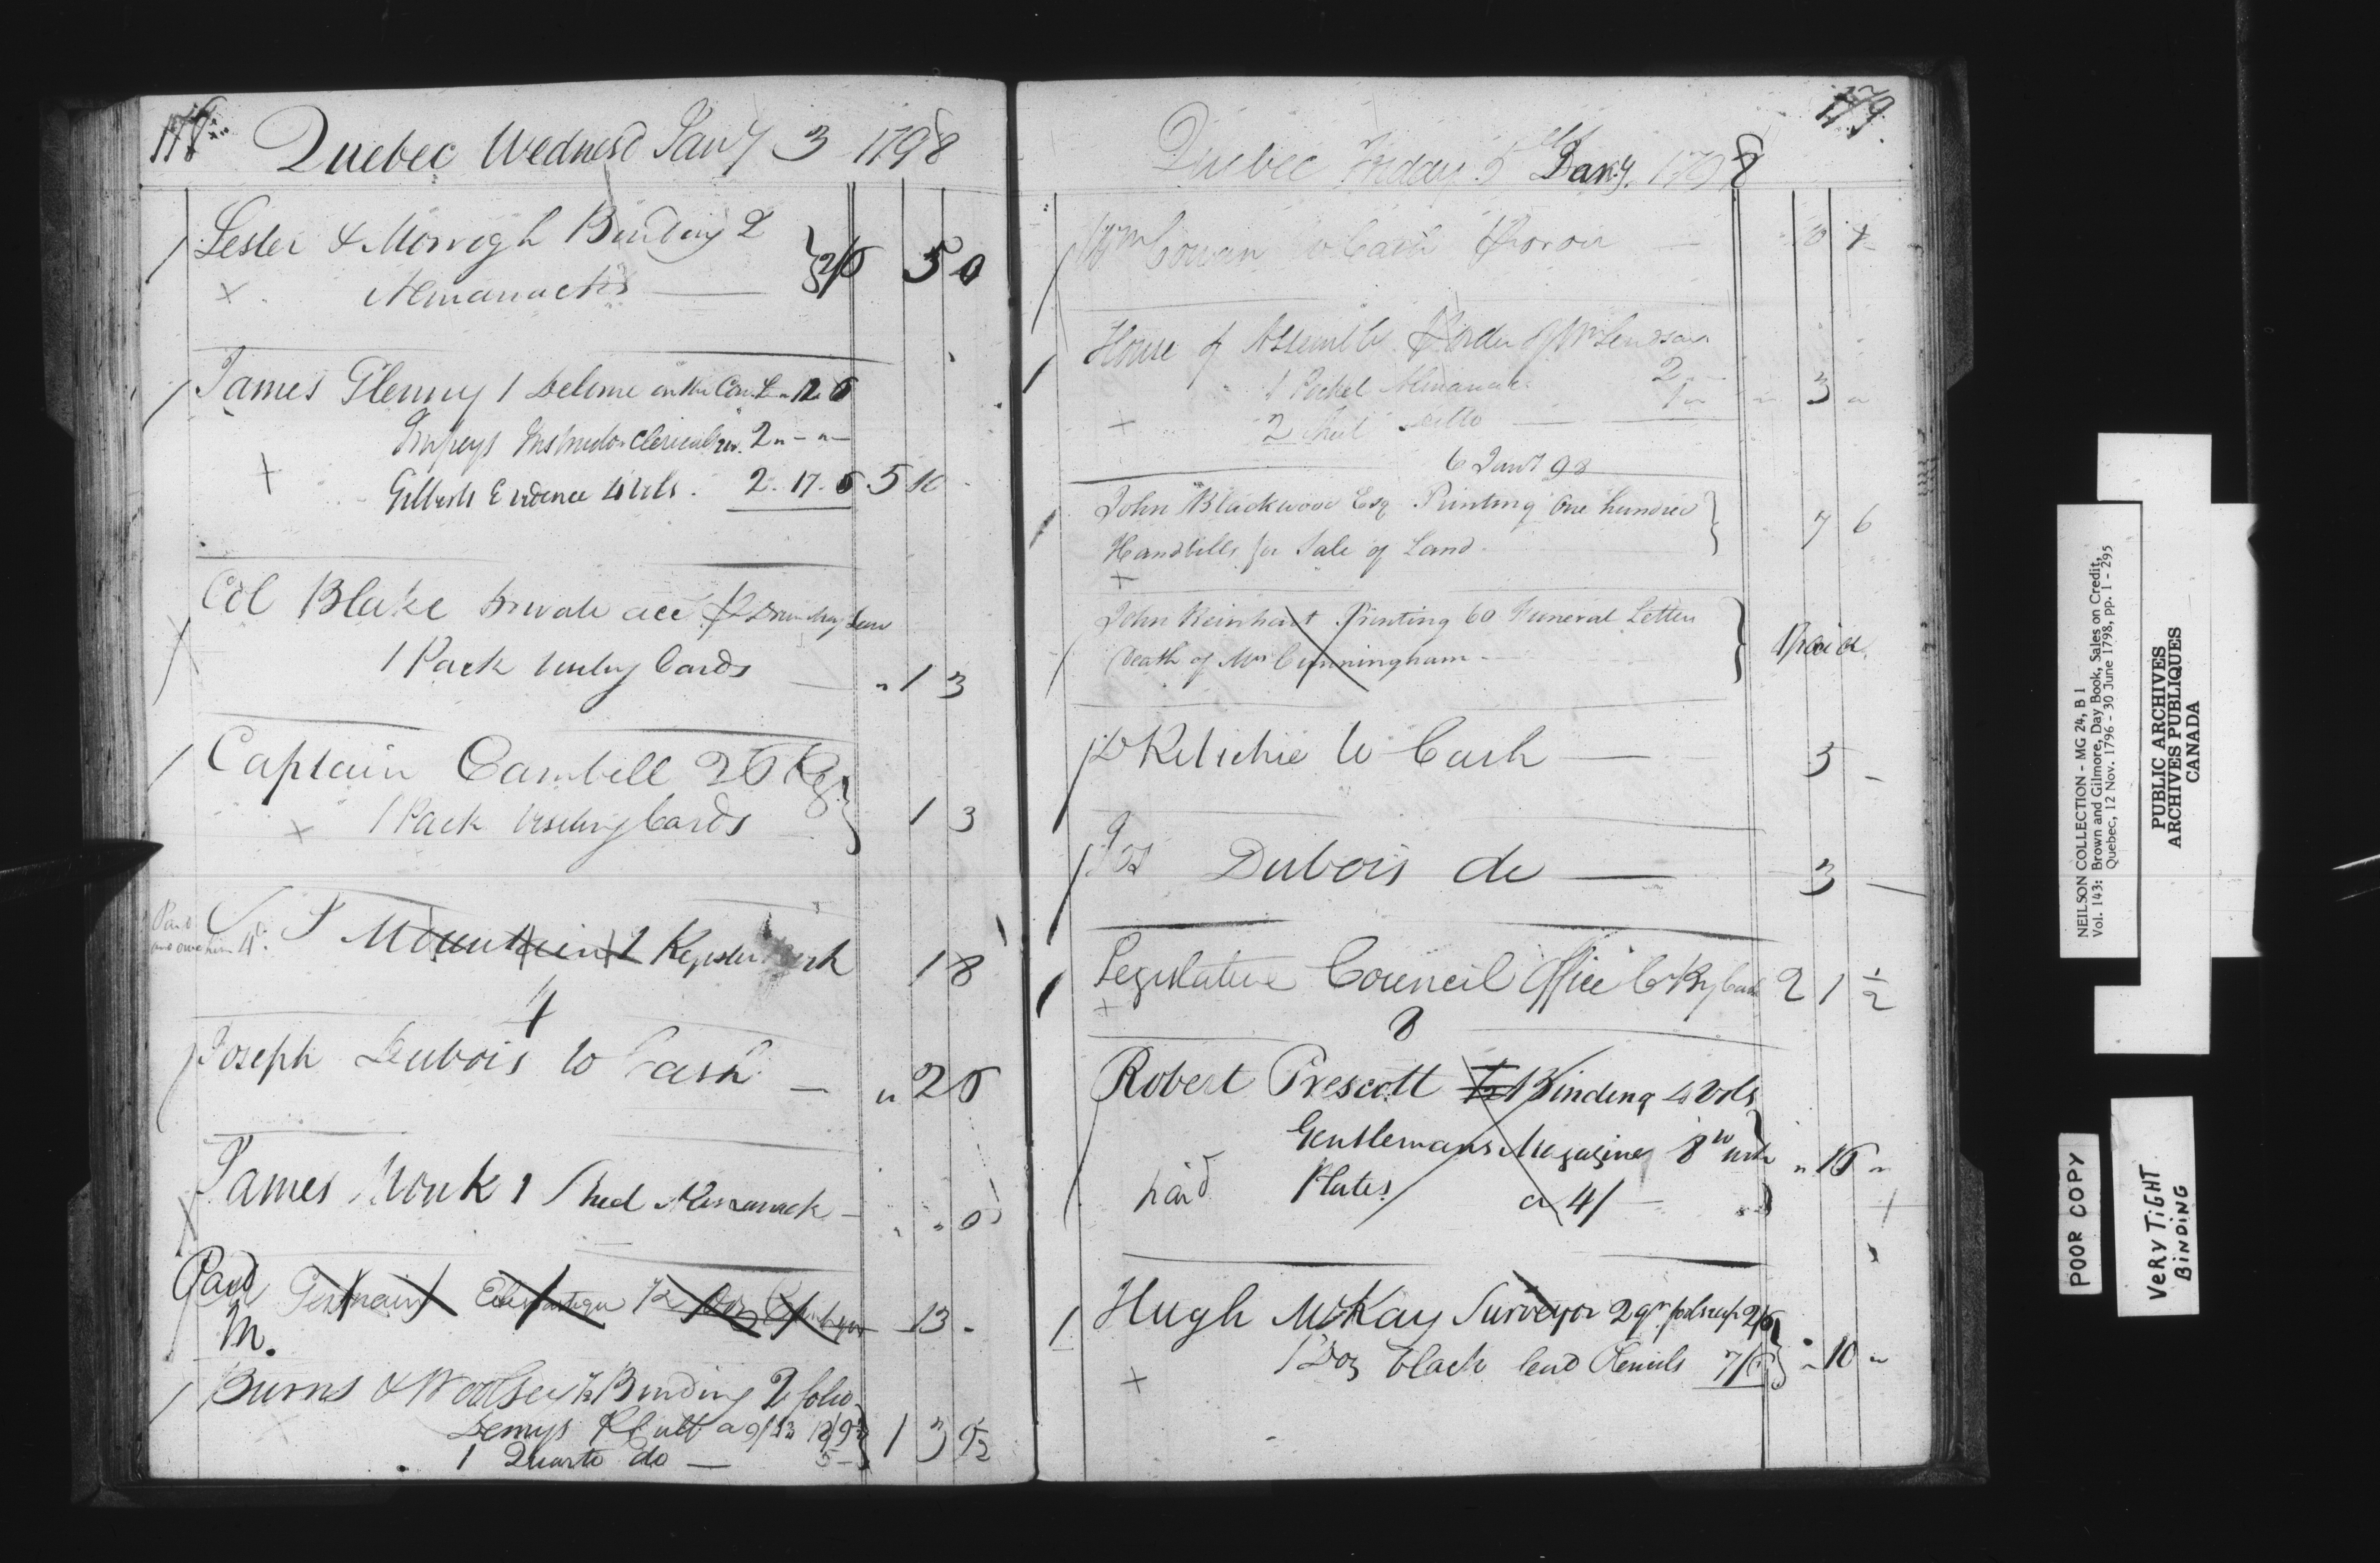 178
Quebec Wednesd Jany 3 1798
Lester & Morrogh Binding 2
Almanacks 2/6 5 0
James Glenny 1 Delome on the Con. 12 6
Impeys Instructor Clericalis 2 " - " -
Gilberts Evidence 4 Vols. 2. 17. 6 5 10
Col Blake private acct
1 Pack Cards " 1 3
Captain Cambell 26 Rg
1 Pack Visiting Cards 1 3
Paid and owe him
J Mountain 1 Register 18
4
Joseph Dubois to Cash - " 2 6
James Monk 1 Sheet Almanack -
Paid
Germain 12 Doz 13 -
m.
Burns & Woolsey To Binding 2 folio
Demys
1 Quarto do - 5 -
179.
Quebec Friday 5 Jany. 1798
Wm Cowan to Cash
House of Assembly order of Mr
1 Pocket Almanack 2 " -
2 Sheet ditto 3 "
6 Jany 98
John Blackwood Esq Printing One hundred
Handbills for Sale of Land 7 6
John Reinhart Printing 60 Funeral Letters
Death of Mrs Cunningham - Paid
D Ritchie to Cash - 5 -
Jos Dubois do - 3 -
Legislative Council Office 2 1 1/2
8
Robert Prescott Binding 4 Vols
Gentlemans Magazine 8vo with
paid Plates a 4/ - " 16 "
Hugh McKay Surveyor 2 qr foolscap 2/6
1 Doz black lead Pencils 7/6 " 10 "
NEILSON COLLECTION - MG 24, B 1
Vol. 143: Brown and Gilmore, Day Book, Sales on Credit,
Quebec, 12 Nov. 1796 - 30 June 1798, pp. 1 - 295
PUBLIC ARCHIVES
ARCHIVES PUBLIQUES
CANADA
POOR COPY
VERY TiGHT
BiNDiNG